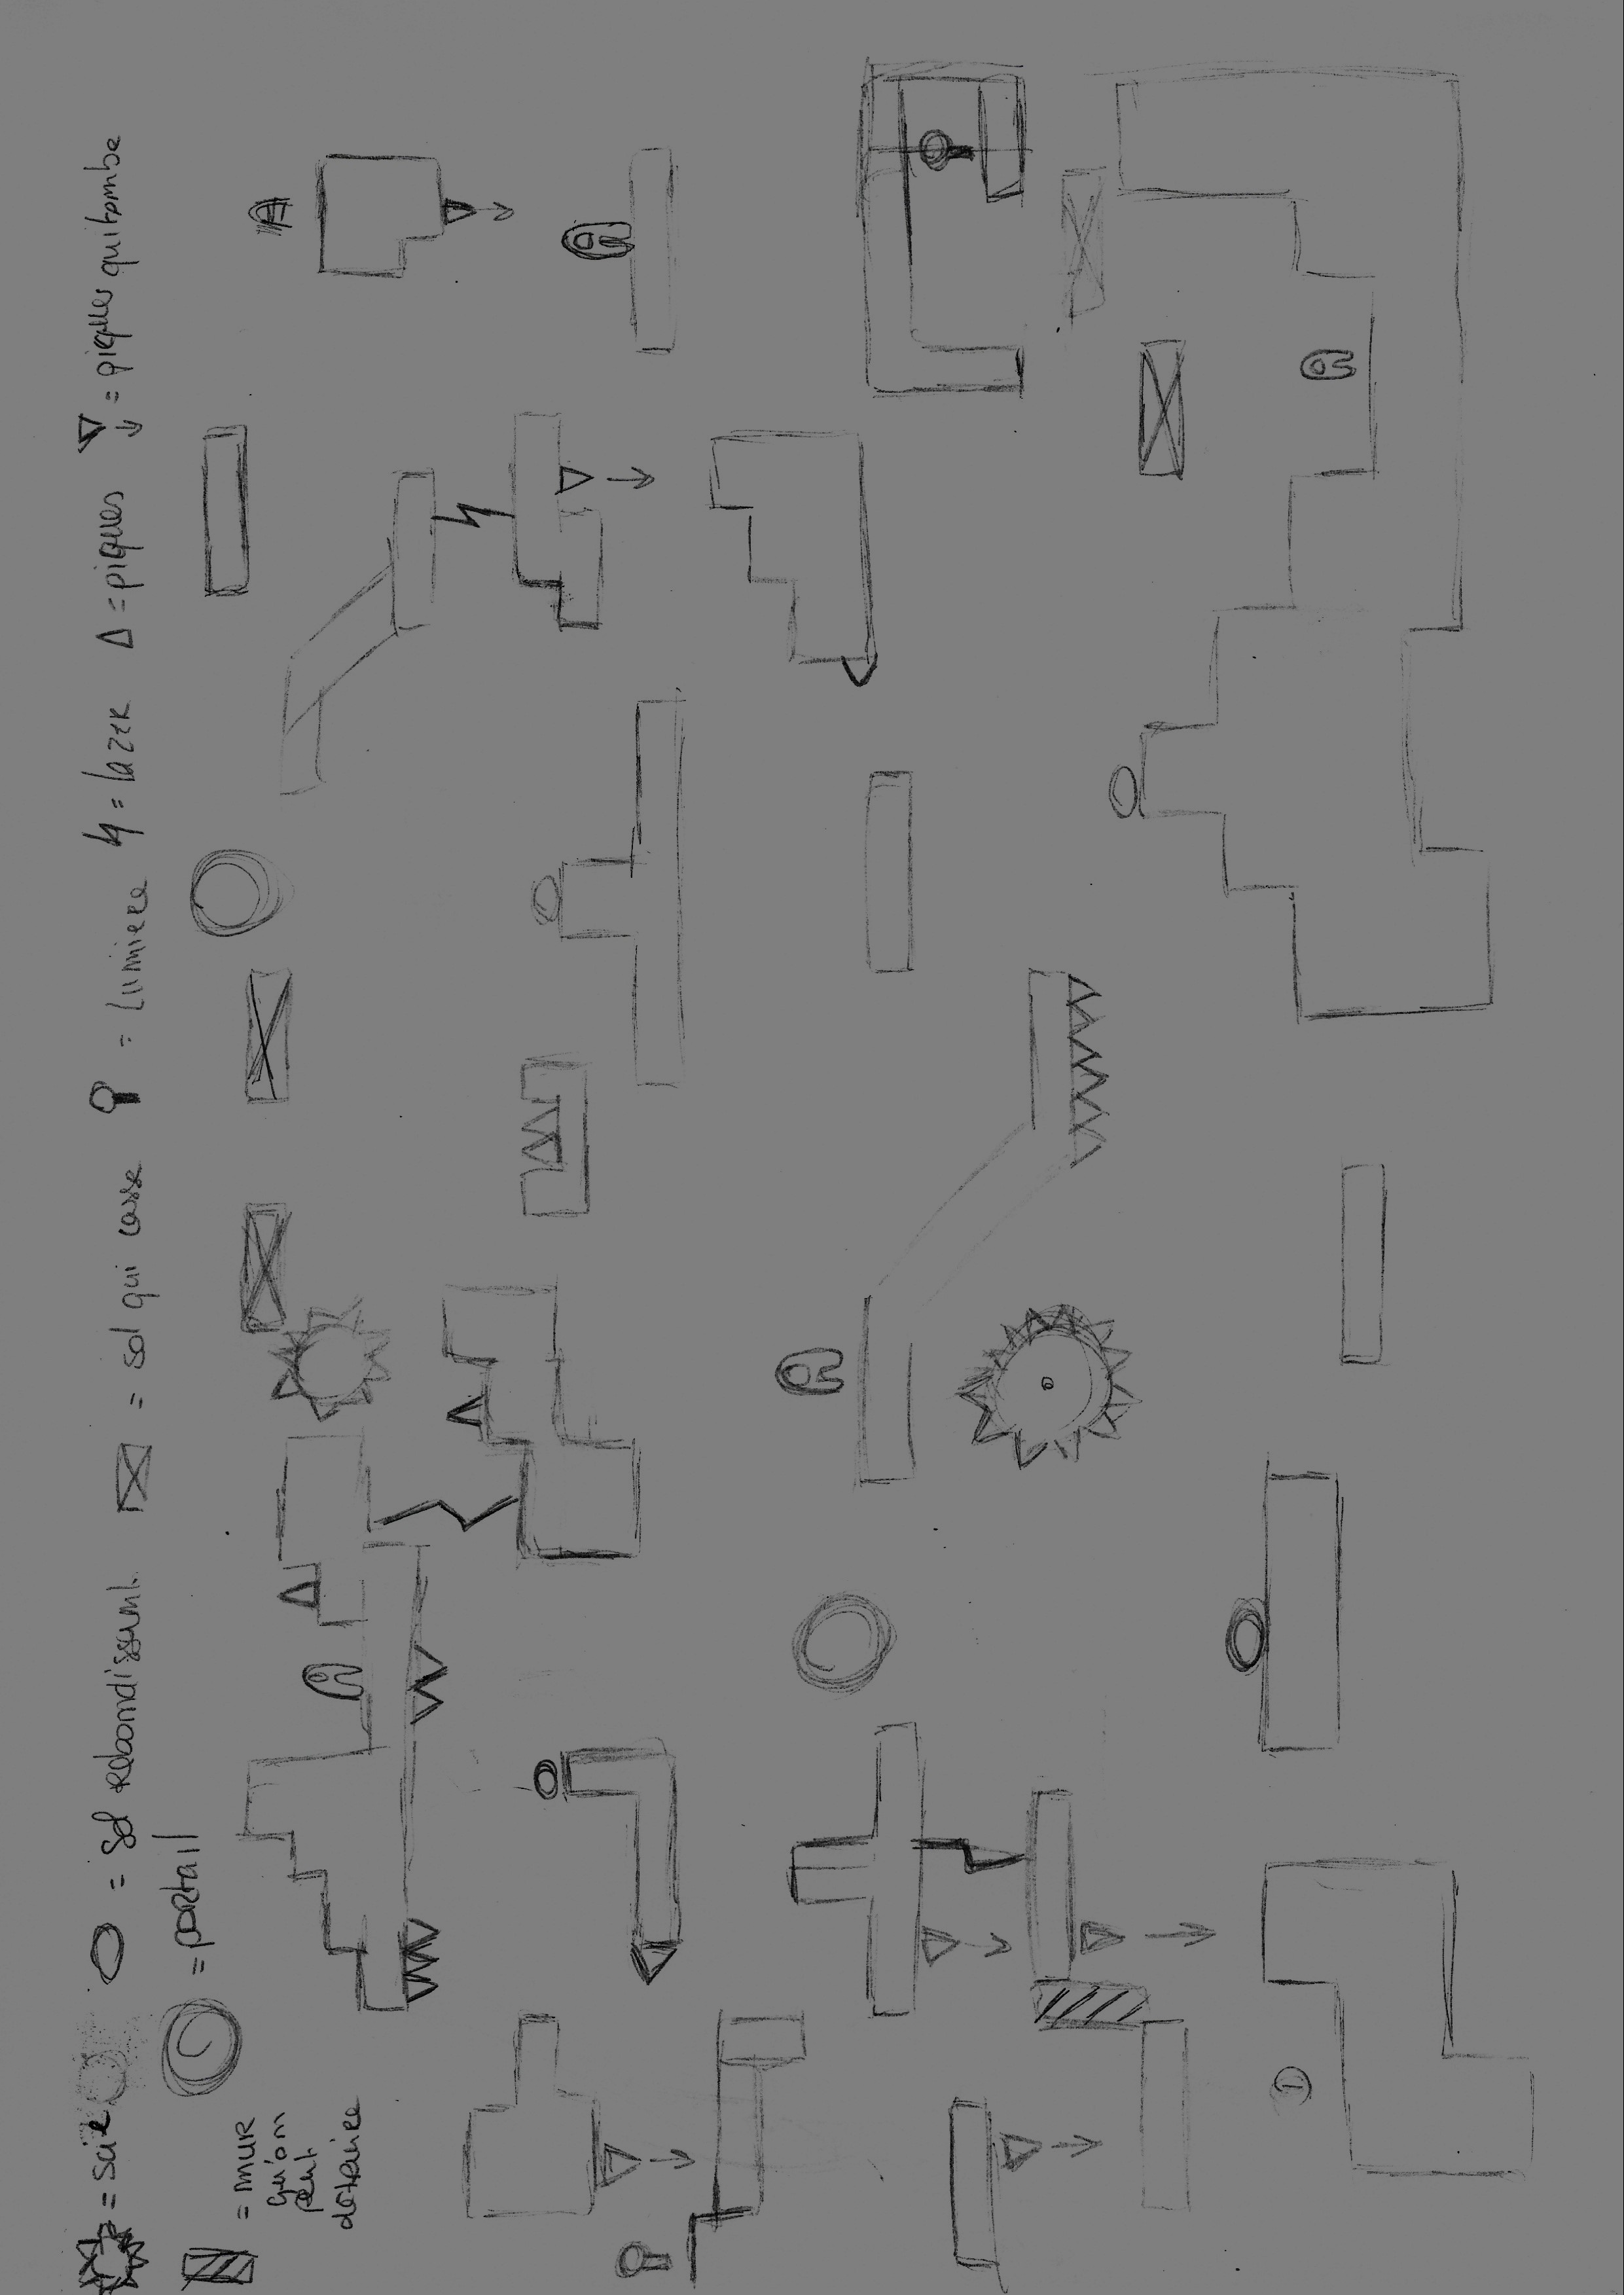 = scie
= sol rebondissant.
= sol qui casse
= Lumiere
= lazer
= piques
= piques qui tombe
= portail
= mur
qu'on
peut
détruire
1